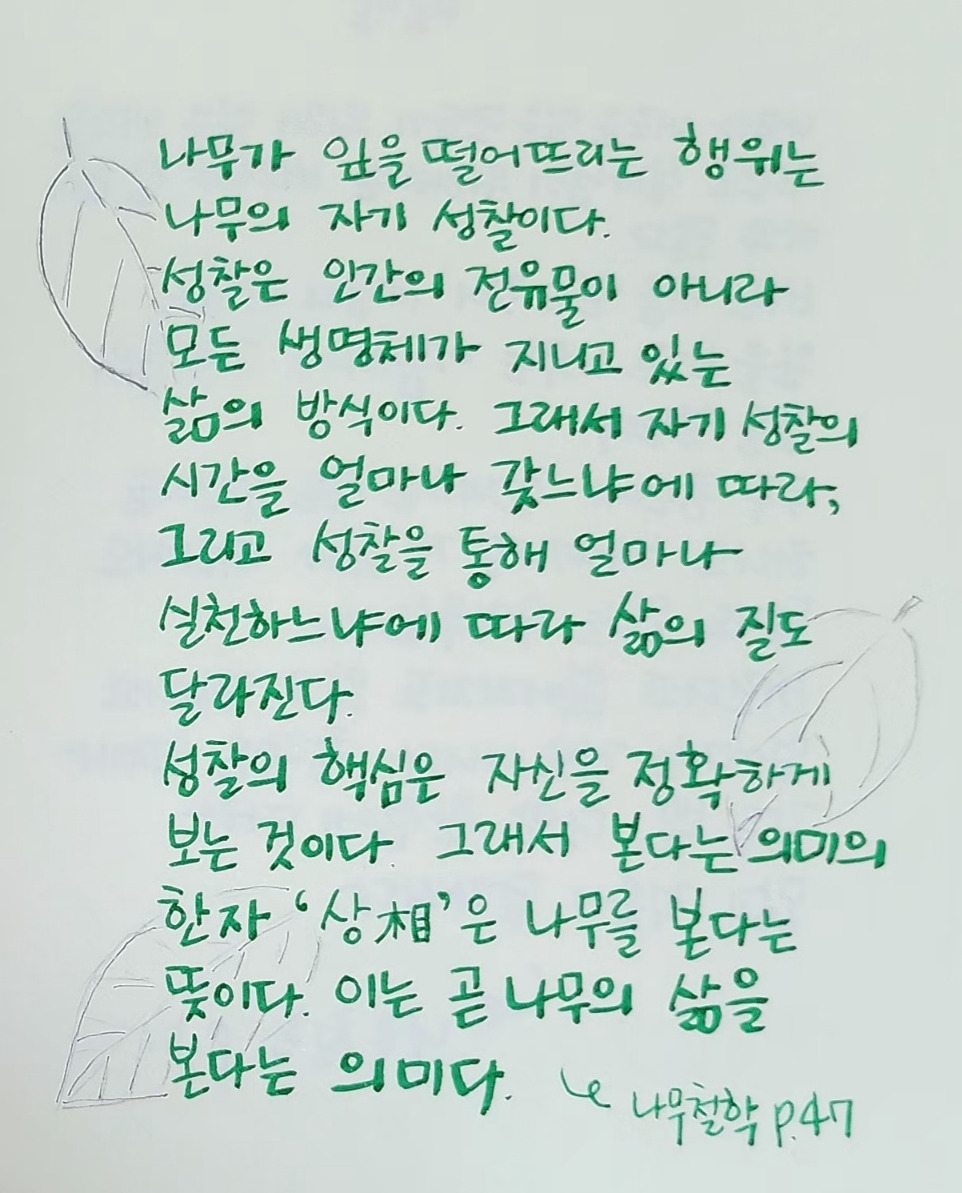 나무가 잎을 떨어뜨리는 행위는
나무의 자기 성찰이다.
성찰은 인간의 전유물이 아니라
모든 생명체가 지니고 있는
삶의 방식이다. 그래서 자기 성찰의
시간을 얼마나 갖느냐에 따라,
그리고 성찰을 통해 얼마나
실천하느냐에 따라 삶의 질도
달라진다.
성찰의 핵심은 자신을 정확하게
보는 것이다. 그래서 본다는 의미의
한자 '상相'은 나무를 본다는
뜻이다. 이는 곧 나무의 삶을
본다는 의미다.
나무철학 p.47